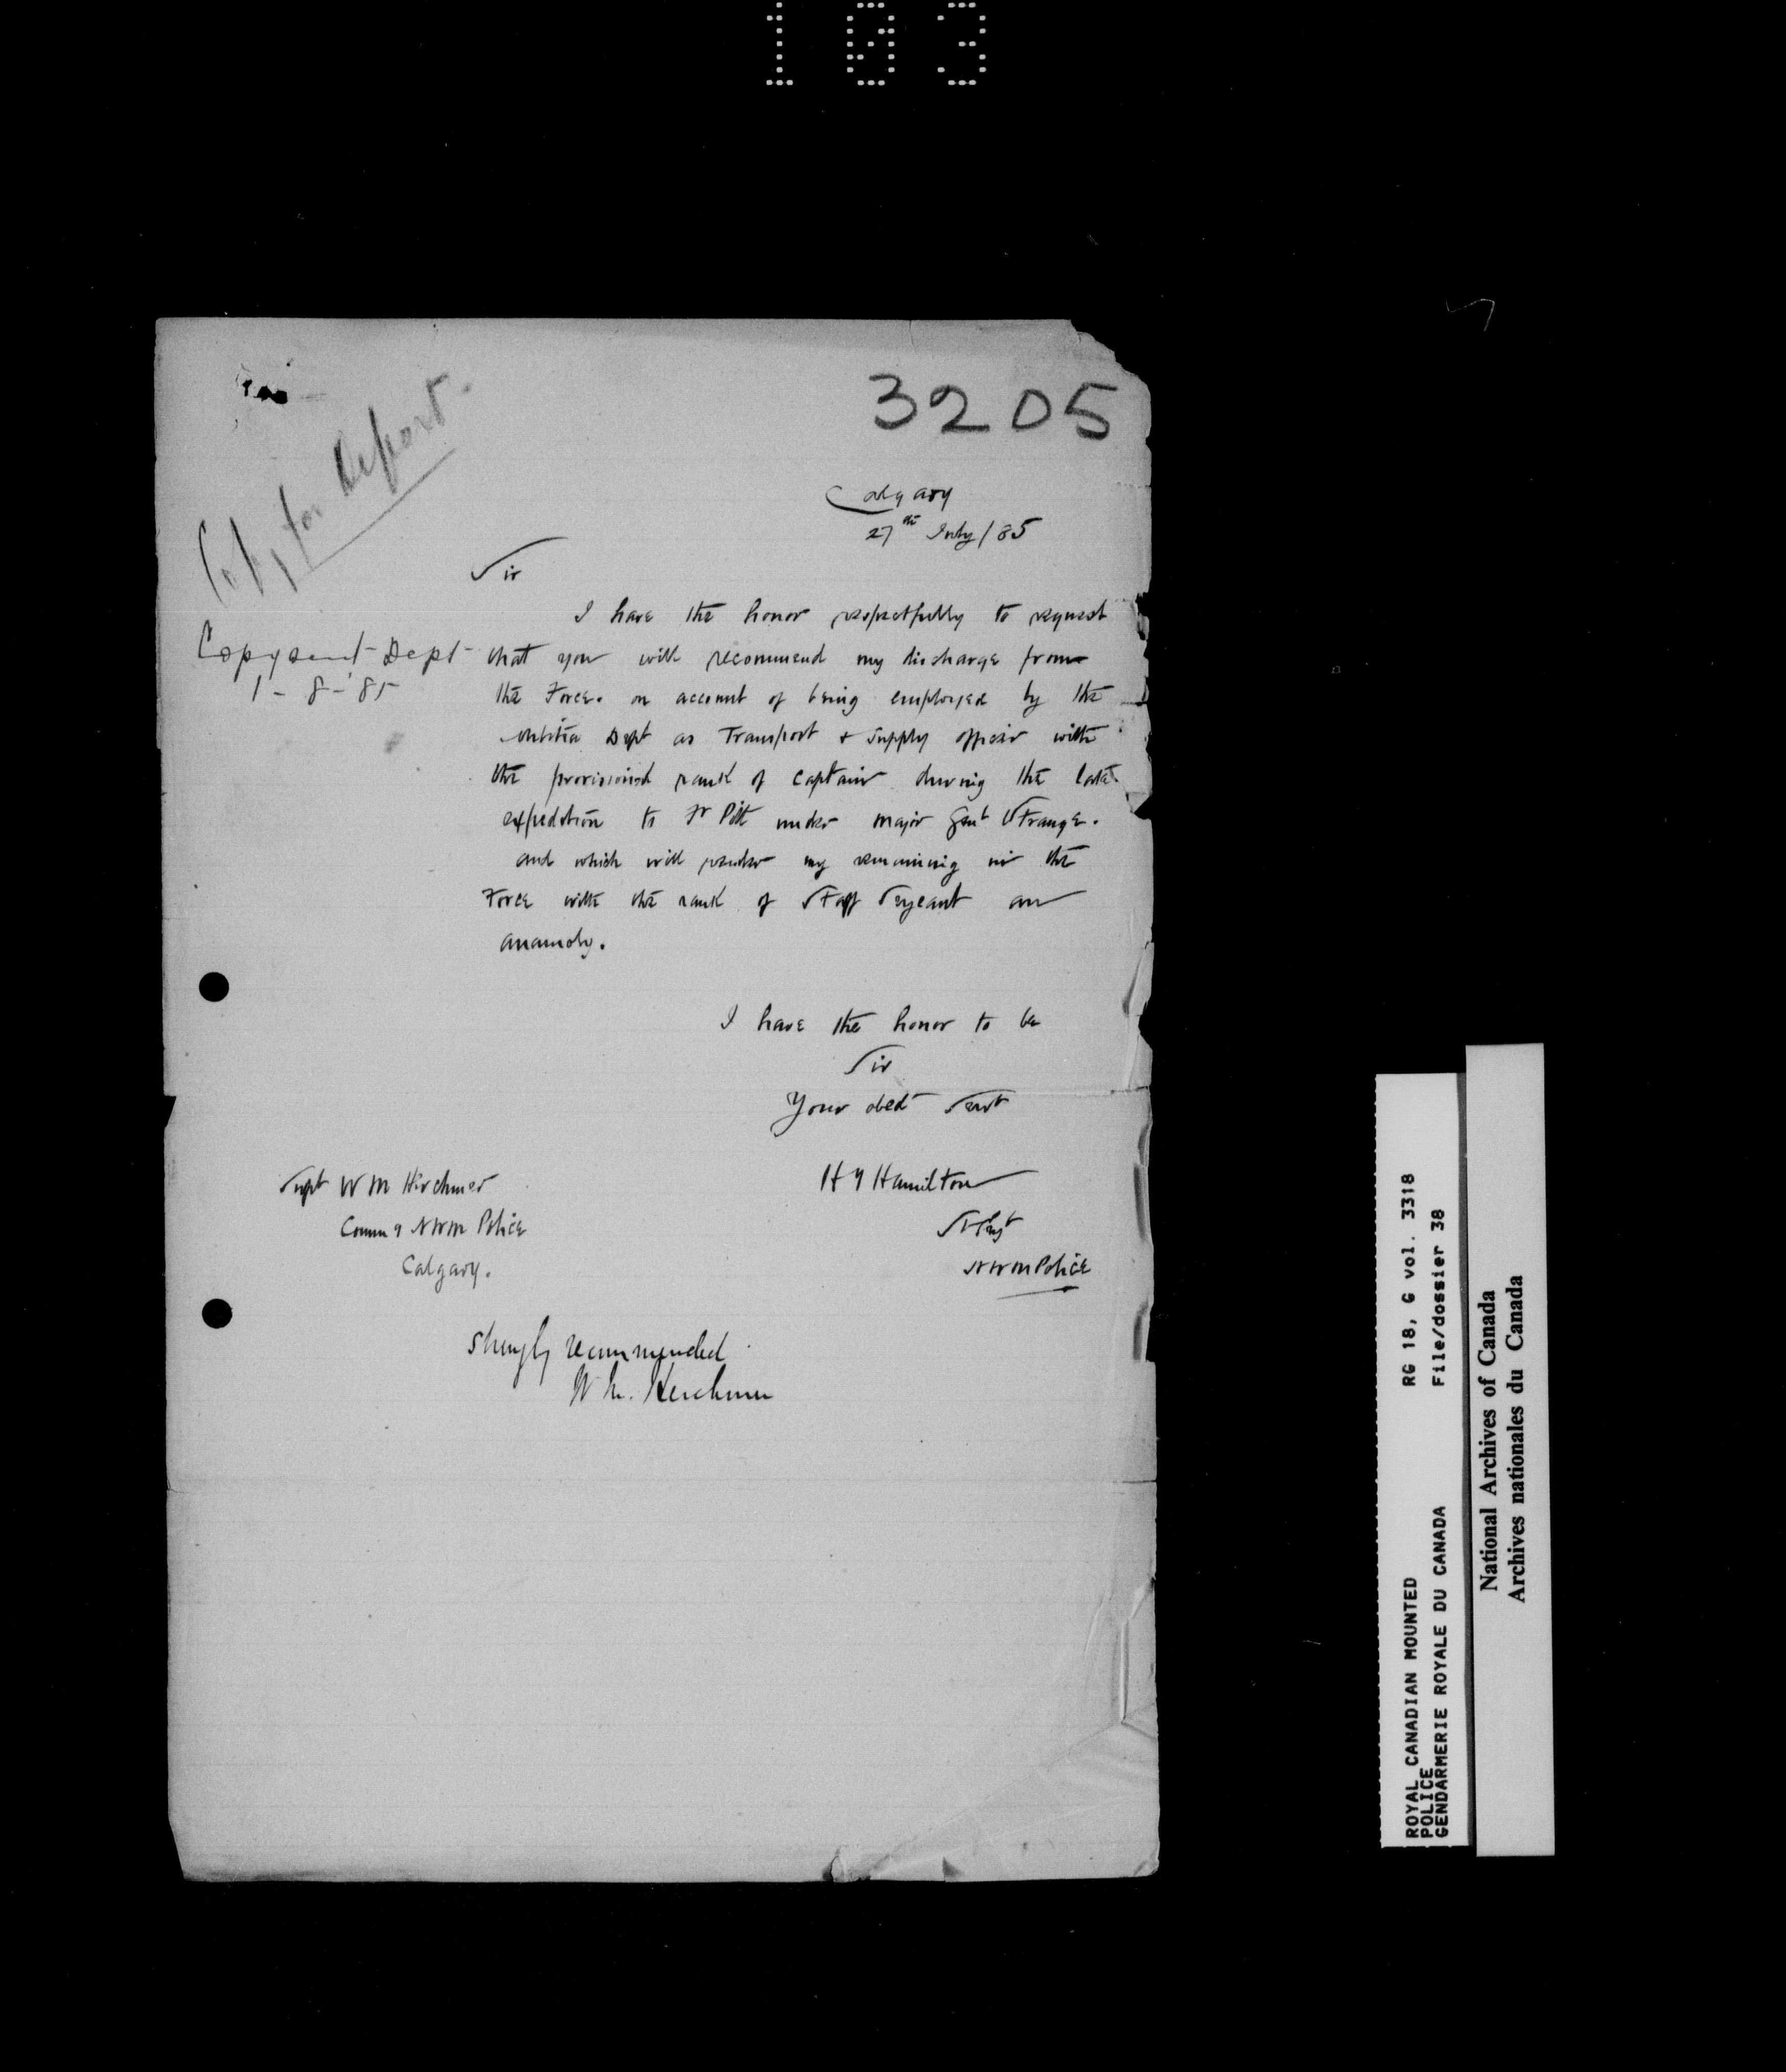 103
3205
Copy for Depart.
Calgary
27th July / 85
Sir
I have the honor respectfully to request
Copy sent Dept
1 - 8 - '85
that you will recommend my discharge from
the Force. on account of being employed by the
Militia Dept as Transport & Supply officer with
the provisional rank of Captain during the late
expedition to Ft Pitt under Major Genl Strange.
and which will render my remaining in the
Force with the rank of Staff Sergeant an
anamoly.
I have the honor to be
Sir
Your obedt Servt
Supt W M Hirchmer
Commg NWM Police
Calgary.
H Y Hamilton
St Sergt
NWM Police
Strongly recommended
W M. Herchmer
ROYAL CANADIAN MOUNTED POLICE
GENDARMERIE ROYALE DU CANADA
RG 18, G vol. 3318
File/dossier 38
National Archives of Canada
Archives nationales du Canada